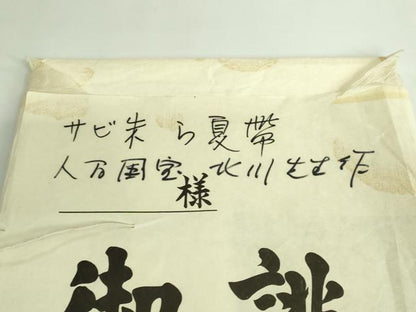 サビ朱 ら夏帯
人万国宝 北川先生作
様
御誂